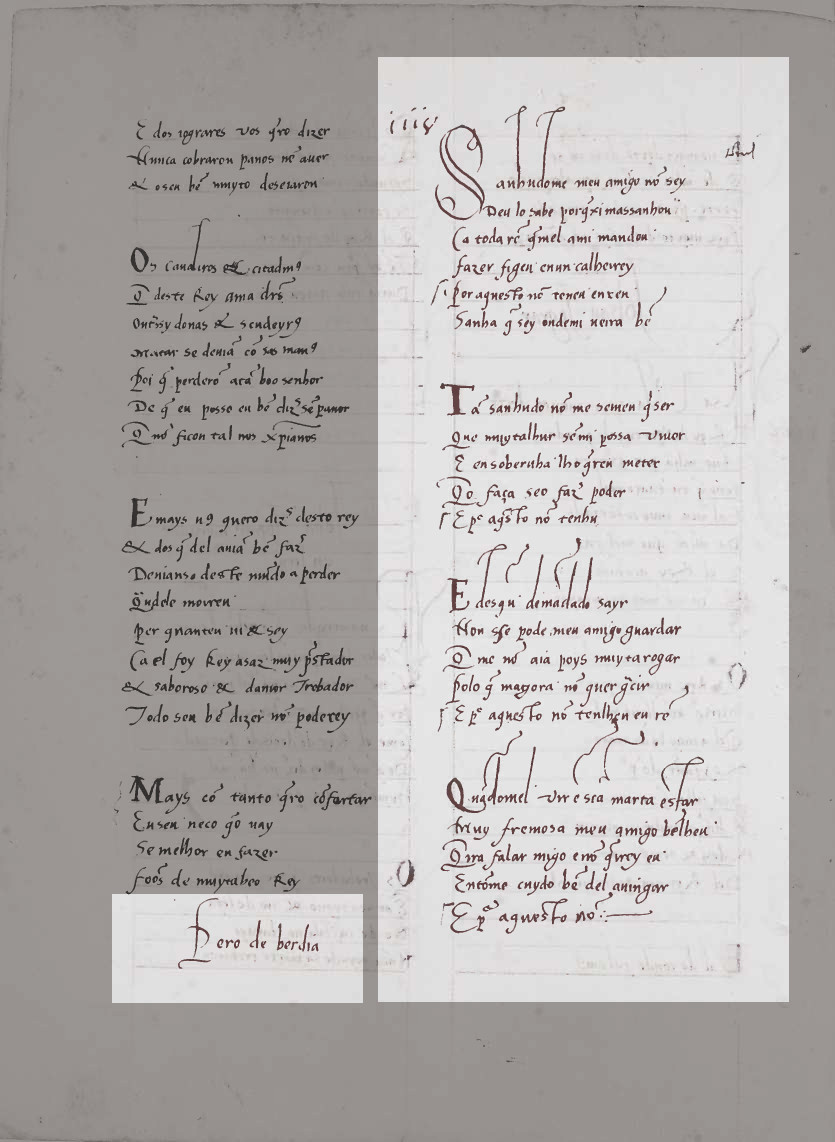 E dos iograres vos q̃ro dizer
Nunca cobraron panos nẽ auer
& o seu bẽ muyto deseiaron
Os caualiros & citadãos
Q̃ deste Rey auia
donas & scudeyros
Matar se deuiã cõ sas mãos
Poi q̃ perderõ atã boo senhor
De q̃ eu posso eu bẽ dizer sẽ pauor
Q̃ nõ ficou tal nos xp̃ianos
E mays uos quero dizer desto rey
& dos q̃ del auiã bẽ fazer
Deuianso deste mũdo a perder
Quãdele morreu
Per quanteu ui & sey
Ca el foy Rey asaz muy prestador
& saboroso & damor Trobador
Todo seu bẽ dizer nõ poderey
Mays cõ tanto q̃ro cõfortar
En seu neco
Se melhor en fazer
de muytaboo Rey
Pero de berdia
Sanhudome meu amigo nõ sey
Deu lo sabe porq̃xi massanhou
Ca toda rẽ q̃mel ami mandou
fazer figeu enun calherrey
Por aquesto nõ teneu enren
Sanha q̃ sey ondemi ueira bẽ
Tã sanhudo nõ me semeu q̃ser
Que muytalhur sẽmi possa viuer
E ensoberuha lho q̃reu meter
Q̃o faça seo fazer poder
E per aq̃sto nõ tenhu
E desqui demãdado sayr
Non sse pode meu amigo guardar
Q̃ me nõ aia poys muytarogar
Polo q̃ magora nõ quer g̃cir
E per aquesto nõ tenlheu eu rẽ
Quãdomel vir e scã marta estar
Muy fremosa meu amigo bẽ lheu
Q̃ira falar migo e nõ q̃rrey eu
Entõme cuydo bẽ del auingar
E per aquesto nõ